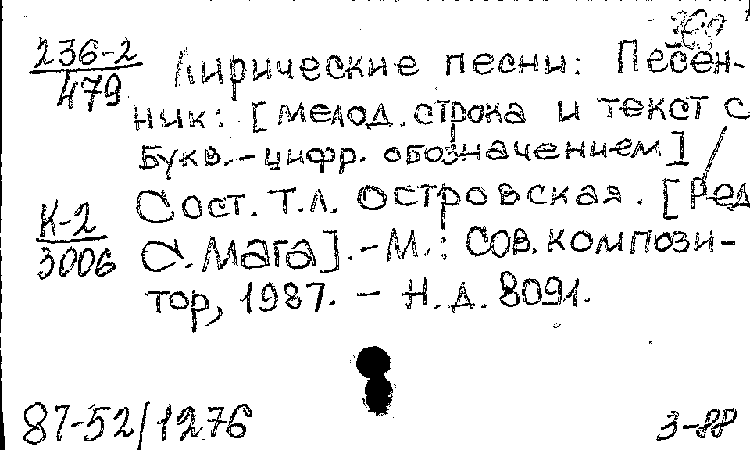 236-2
479
Лирические песни: Песен-
ник: [мелод. строка и текст с
букв.-цифр. обозначением] /
Сост. Т.Л. Островская. [Ред
К-2
3006
С. Мага]. - М.: Сов. компози-
тор, 1987. - Н.д. 8091.
87-52/1276
3-88